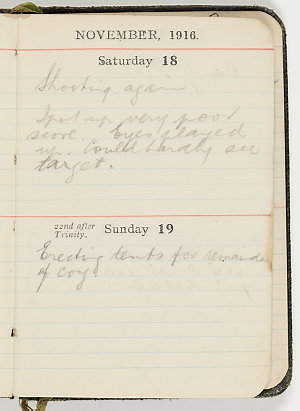 NOVEMBER, 1916.
Saturday 18
Shooting again.
I put up very poor
score. Eyes played
up. Could hardly see
target.
22nd after
Trinity. Sunday 19
Erecting tents for remainder
of coy.